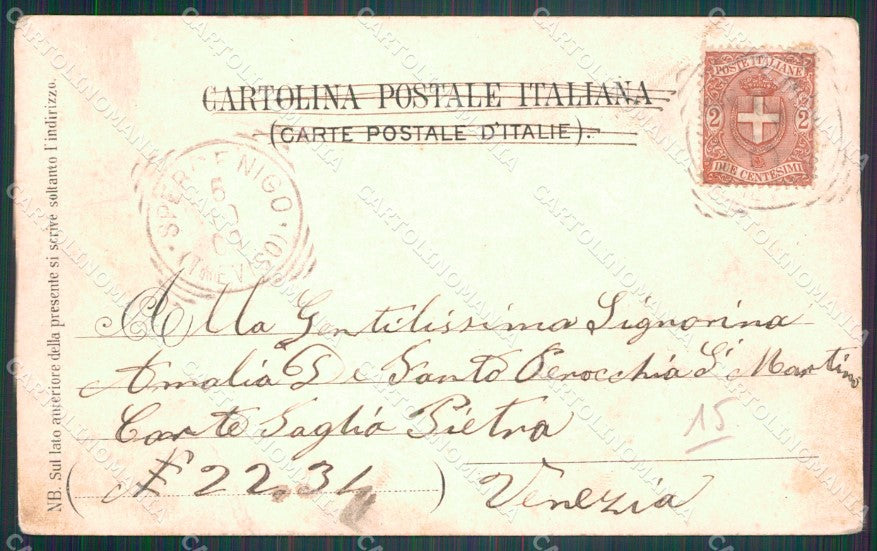 CARTOLINA POSTALE ITALIANA
(CARTE POSTALE D'ITALIE)
POSTE ITALIANE
2 2
DUE CENTESIMI
SPERCENIGO
(TREVISO)
NB. Sul lato anteriore della presente si scrive soltanto l'indirizzo.
Alla Gentilissima Signorina
Amalia De Santo Perocchia S. Martino
Corte Saglia Pietra
15
(№ 22.34)
Venezia
CARTOLINOMANIA